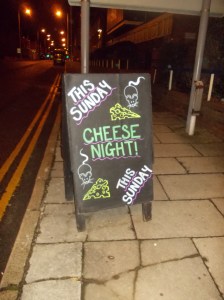 THIS
SUNDAY
CHEESE
NIGHT!
THIS
SUNDAY